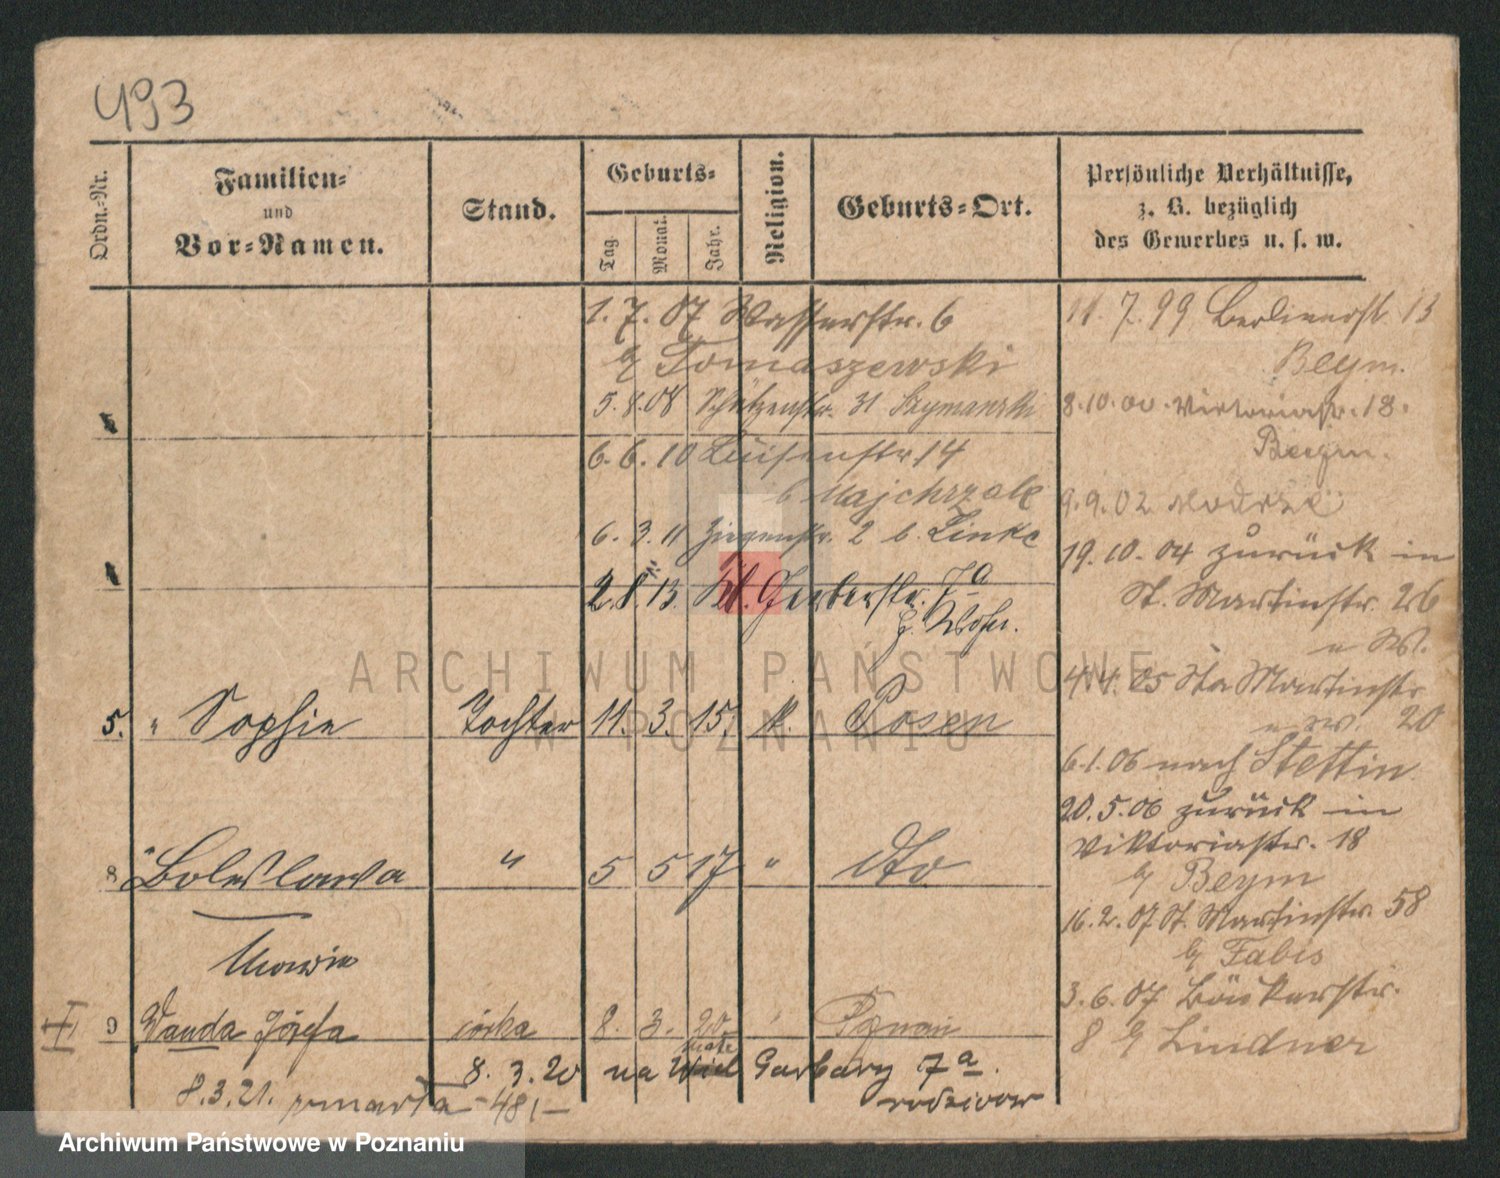 493
Ordn.-Nr.
Familien-
und
Vor-Namen.
Stand.
Geburts-
Tag
Monat.
Jahr.
Religion.
Geburts-Ort.
Persönliche Verhältnisse,
z. B. bezüglich
des Gewerbes u. s. w.
1. 7. 07 Wasserstr. 6
b/ Tomaszewski
5. 8. 08 Schützenstr. 31 Szymanski
6. 6. 10 Luisenstr. 14
b Majchrzak
6. 3. 11 Ziegenstr. 2 b. Linke
2. 8. 13. Kl. Gerberstr. 7a
5. " Sophie Tochter 11. 3. 15. k. Posen
8 " Boleslawa " 5 5 17 " dto
Maria
9 Wanda Józefa córka 8. 3. 20 Poznań
8. 3. 20 na Małe Garbary 7a.
rodziców
8.3.21. zmarła 48,-
11. 7. 99 Berlinerstr. 13
Beym.
8. 10. 00. Viktoriastr. 18.
Beym.
9. 9. 02
19. 10. 04 zurück in
St. Martinstr. 26
4. 4. 05 St. Martinstr
20
6. 1. 06 nach Stettin
20. 5. 06 zurück in
Viktoriastr. 18
b/ Beym
16. 2. 07 St. Martinstr. 58
b/ Fabis
3. 6. 07 Bäckerstr.
8 b/ Lindner
ARCHIWUM PAŃSTWOWE
W POZNANIU
Archiwum Państwowe w Poznaniu